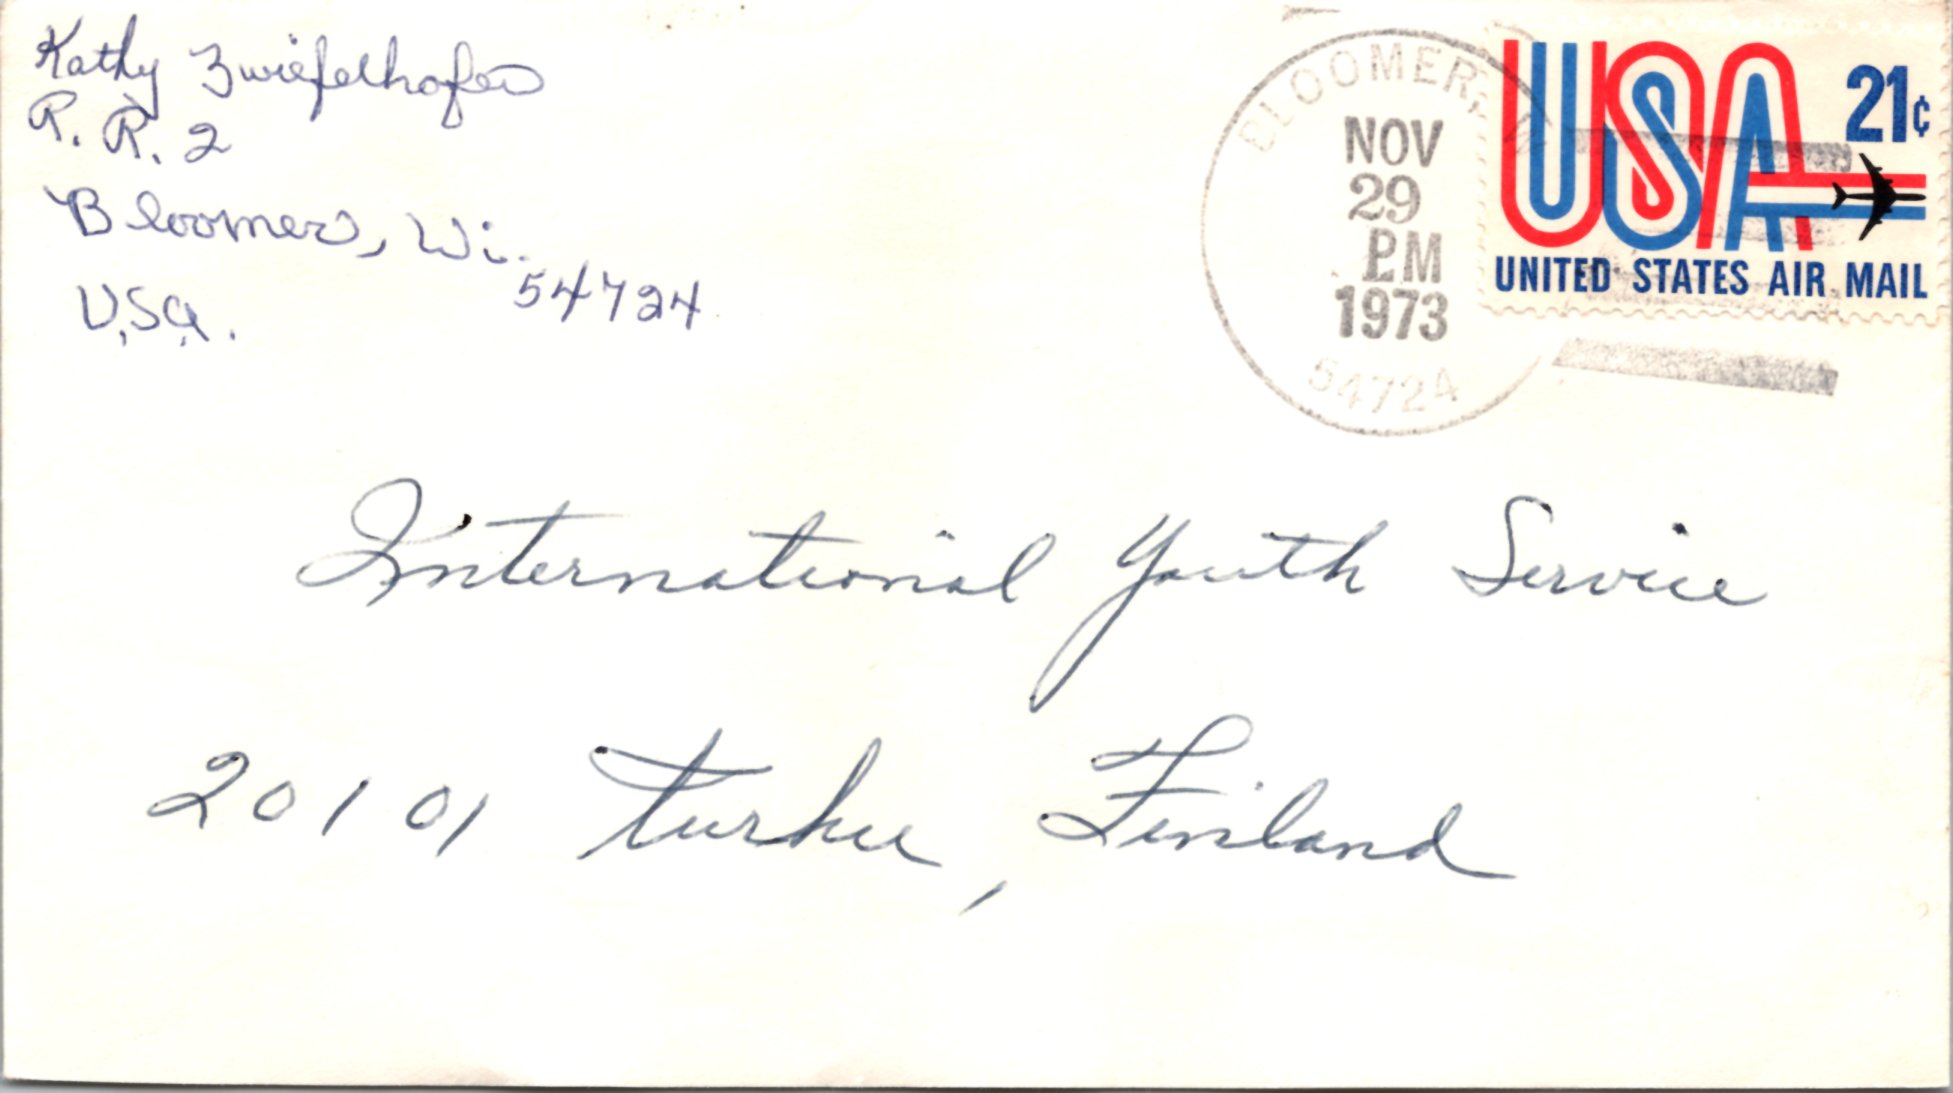 Kathy Zwiefelhofer
R. R. 2
Bloomer, Wi.
54724
U.S.A.
BLOOMER, W
NOV
29
PM
1973
54724
USA 21¢
UNITED STATES AIR MAIL
International Youth Service
20101 Turku, Finland